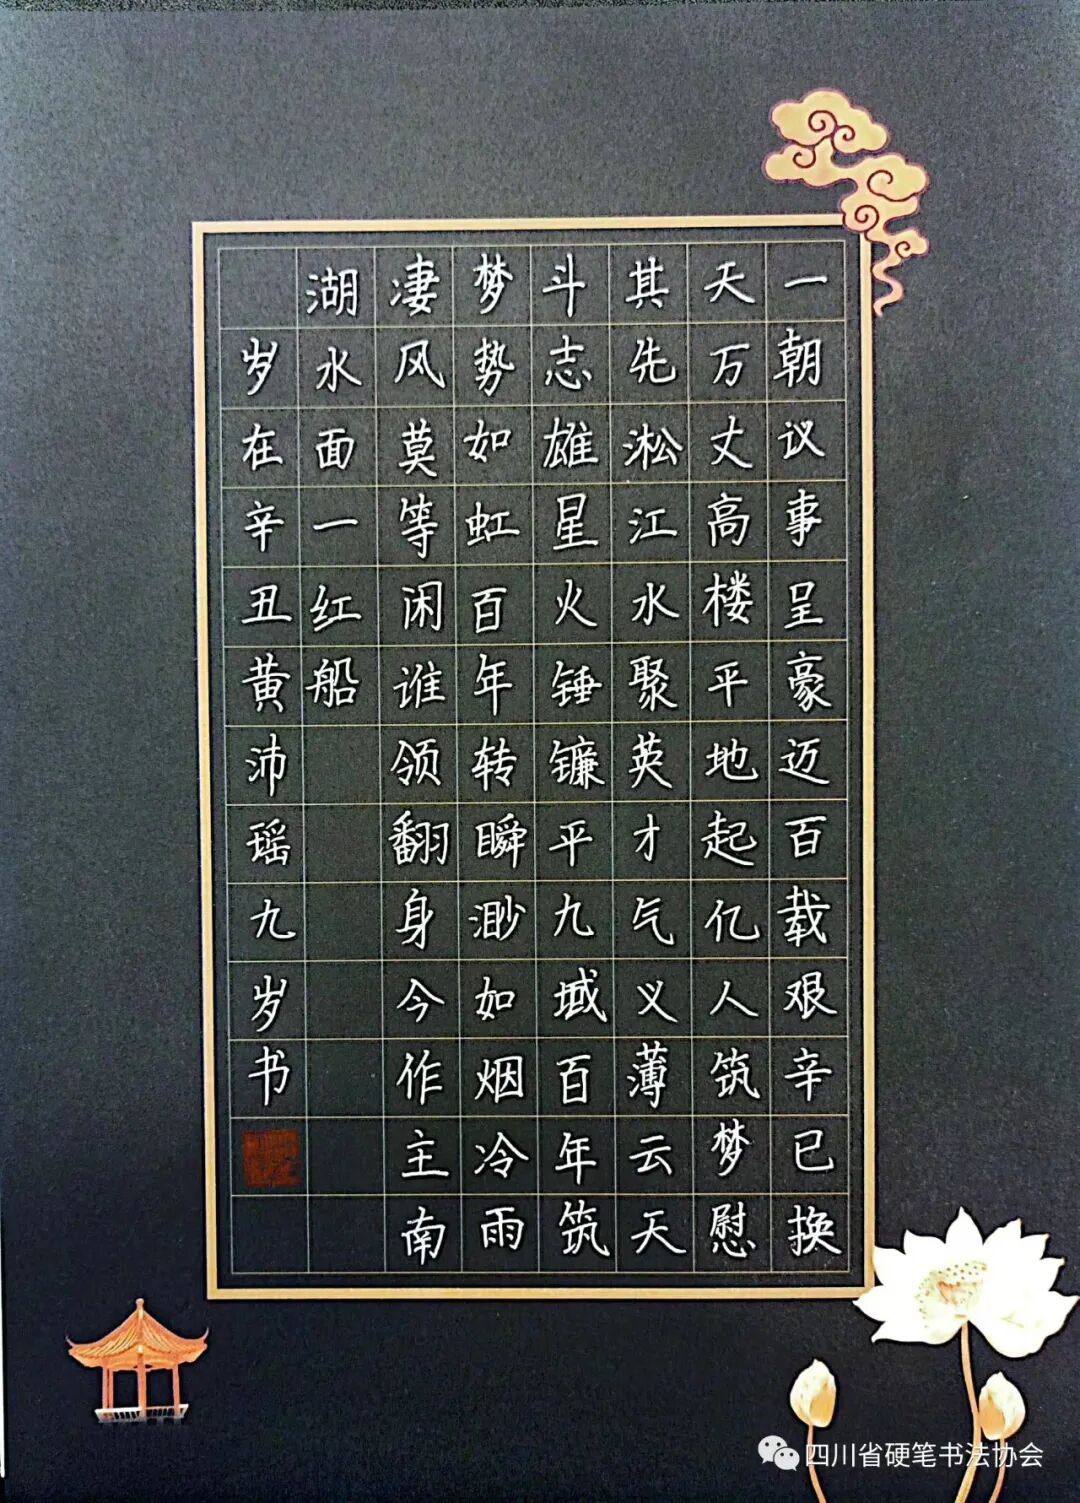 一朝议事呈豪迈百载艰辛已换
天万丈高楼平地起亿人筑梦慰
其先淞江水聚英才气义薄云天
斗志雄星火锤镰平九域百年筑
梦势如虹百年转瞬渺如烟冷雨
凄风莫等闲谁领翻身今作主南
湖水面一红船
岁在辛丑黄沛瑶九岁书
四川省硬笔书法协会